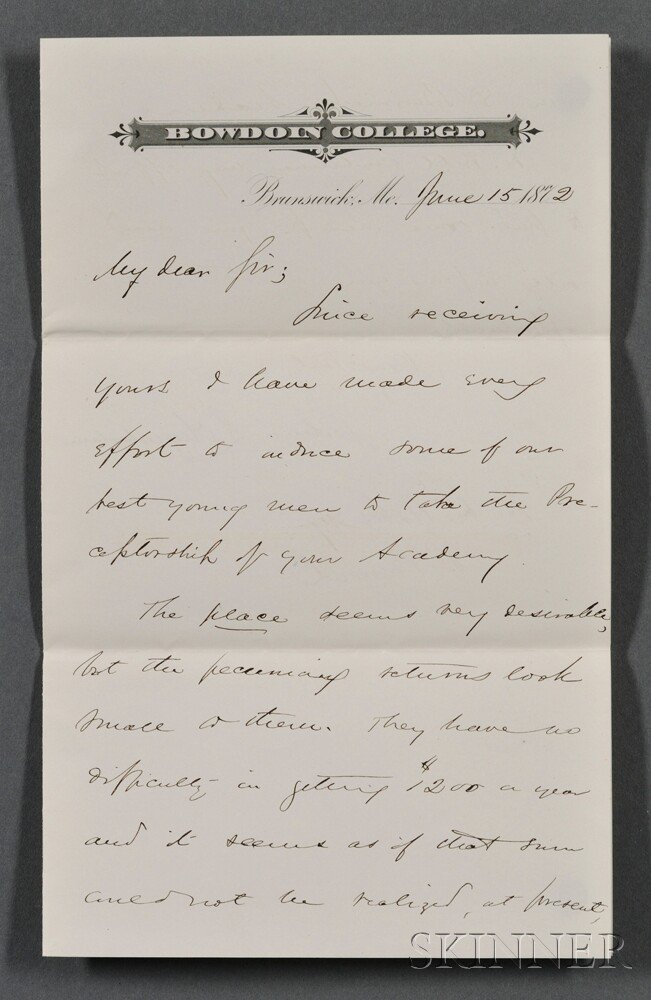 BOWDOIN COLLEGE.
Brunswick, Me. June 15 1872
My dear Sir;
Since receiving
yours I have made every
effort to induce some of our
best young men to take the Pre-
ceptorship of your Academy.
The place seems very desirable,
but the pecuniary returns look
small to them. They have no
difficulty in getting $1200 a year
and it seems as if that sum
could not be realized, at present,
SKINNER